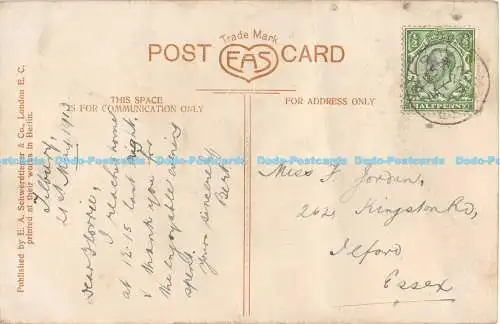 Trade Mark
POST CARD
EAS
THIS SPACE
IS FOR COMMUNICATION ONLY
FOR ADDRESS ONLY
HALFPENNY
Published by E. A. Schwerdtfeger & Co., London E. C.
printed at their works in Berlin.
Tilbury,
21st May, 1913
Dear Florrie,
I reached home
at 12.15 last night.
& thank you for
the enjoyable evening
spent.
Yours sincerely
Bert
Miss F. Jordan,
262 Kingston Rd,
Ilford
Essex
Dodo-Postcards Dodo-Postcards Dodo-Postcards Dodo-Postcards Dodo-Postcards Dodo-Postcards